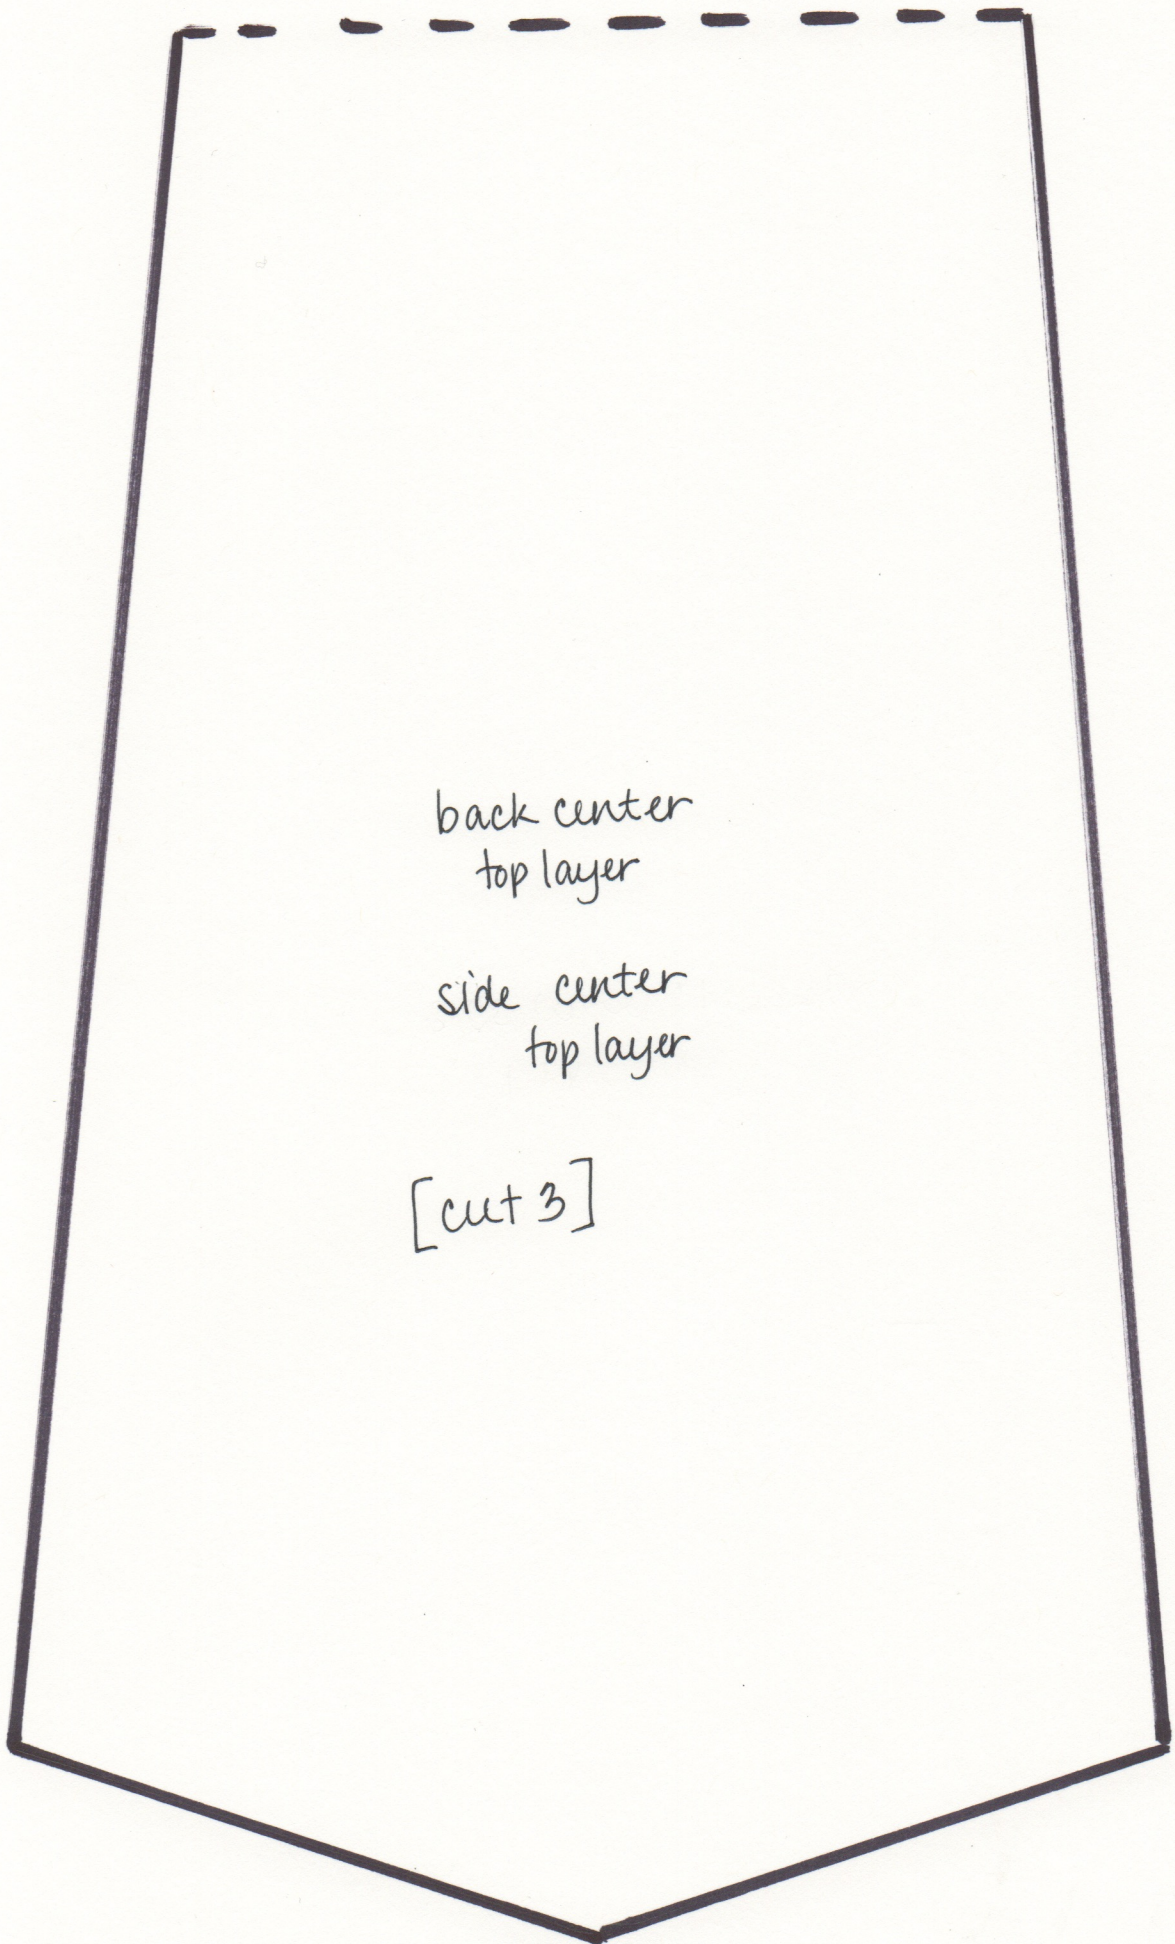 back center
top layer
side center
top layer
[cut 3]